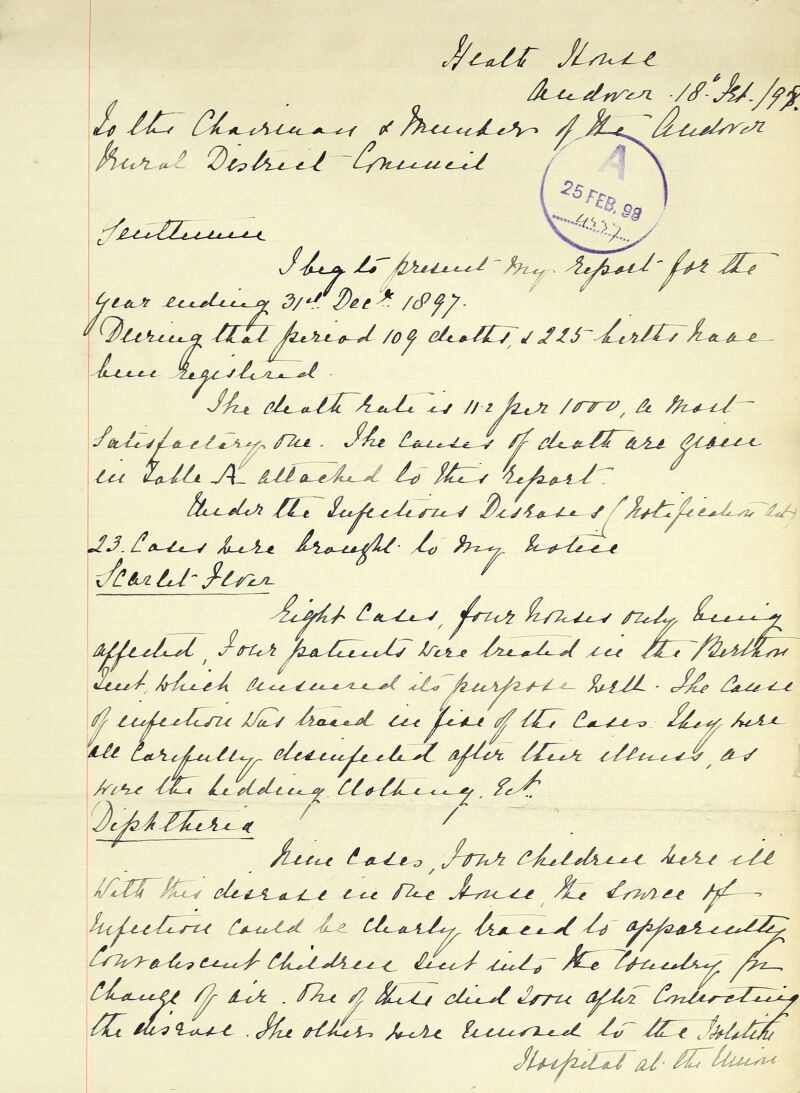 Heath House
Andover. 18th Feb. /98.
To the Chairman & Members of the Andover
Rural District Council
A
25 FEB. 98
Gentlemen
I beg to present my report for the
year ending 31st Decr. 1897.
During that period 109 deaths, & 225 births have
been registered.
The death rate is 11.2 per 1000, a most
satisfactory one. The causes of death are given
in Table A attached to this report.
Under the Infectious Diseases (Notification Act)
23. Cases were brought to my notice
Scarlet Fever
Eight cases, four houses only being
affected, Four patients were treated in the Berthon
Tent, which answered its purpose well. The cause
of infection was traced in five of the cases. They were
all carefully desinfected after their illness, as
were the bedding, clothing, Etc.
Diphtheria
Nine cases, Four children were ill
with this disease in one House, the source of
Infection could be clearly traced to apparently
convalescent children sent into the Country for
change of air. One of these died soon after contracting
the disease. The others were removed to the Isolation
Hospital at the Union